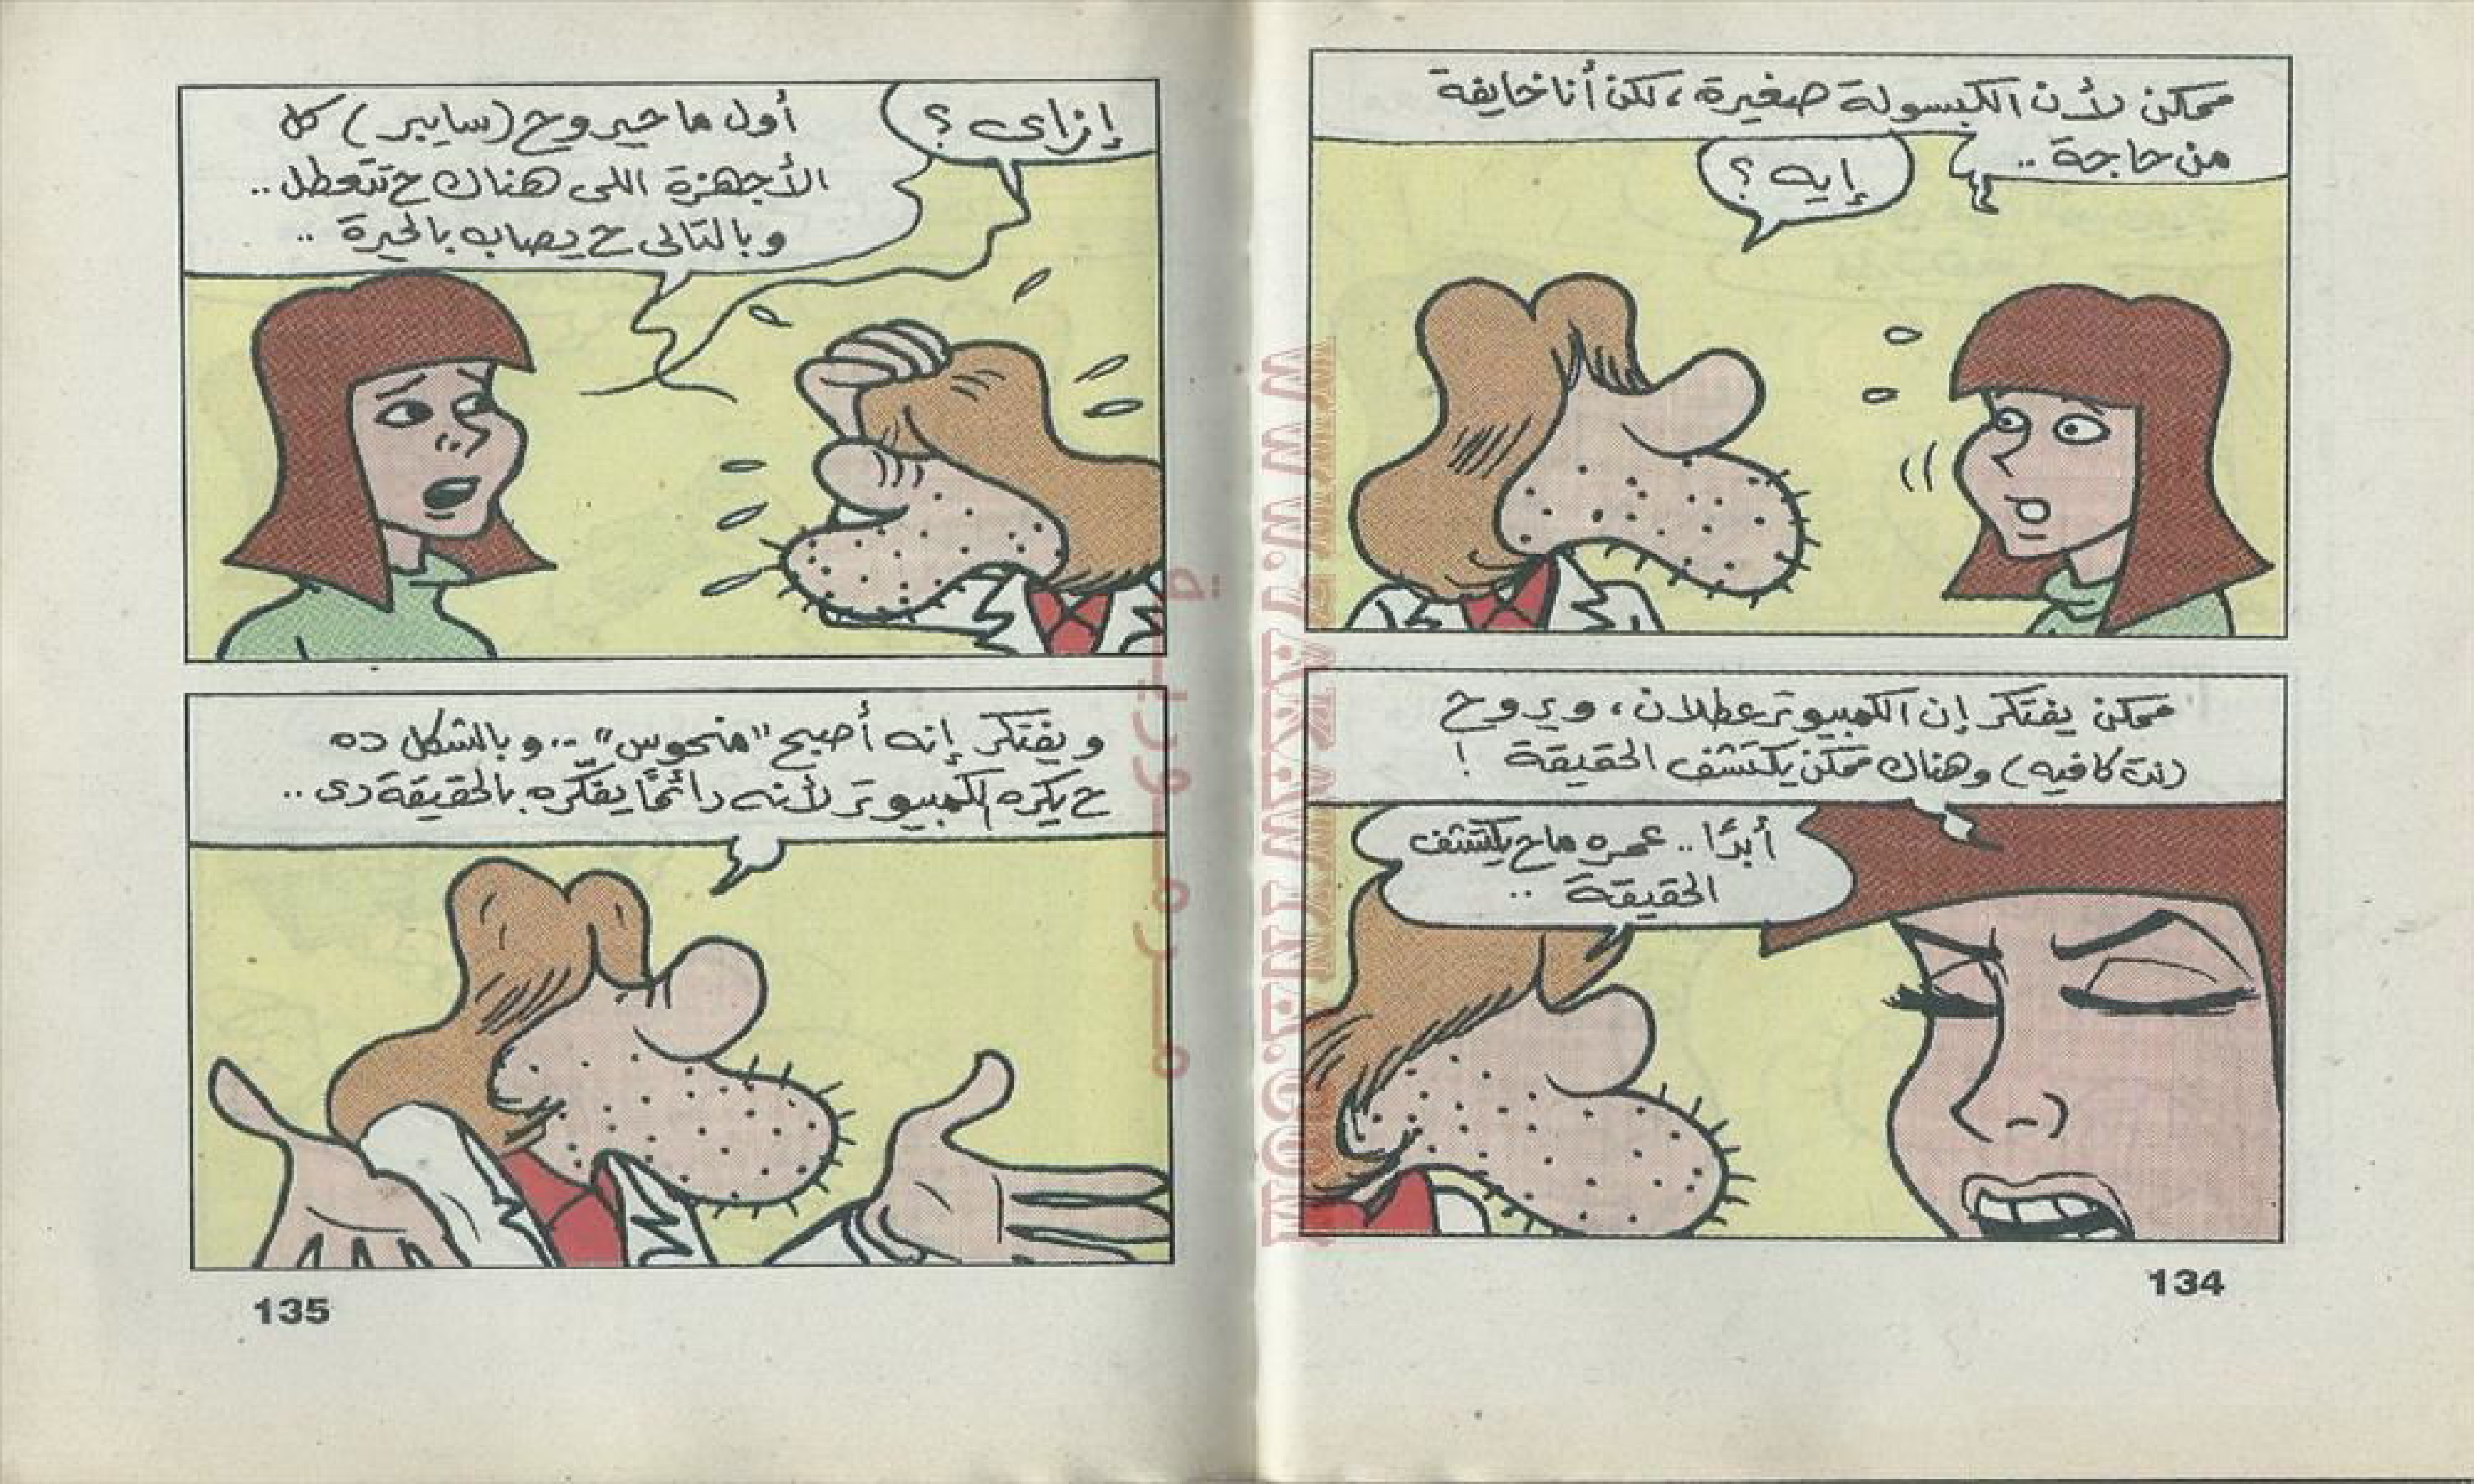 ممكن لأن الكبسولة صغيرة، لكن أنا خايفة
من حاجة ..
إيه ؟
ممكن يفتكر إن الكمبيوتر عطلان، ويروح
(نت كافيه) وهناك ممكن يكتشف الحقيقة !
أبدًا .. عمره ما ح يكتشف
الحقيقة ..
134
إزاى ؟
أول ما حيروح (سايبر) كل
الأجهزة اللى هناك ح تتعطل ..
وبالتالى ح يصاب بالحيرة ..
ويفتكر إنه أصبح "منحوس" .. وبالشكل ده
ح يكره الكمبيوتر لأنه دائمًا يفكره بالحقيقة دى ..
135